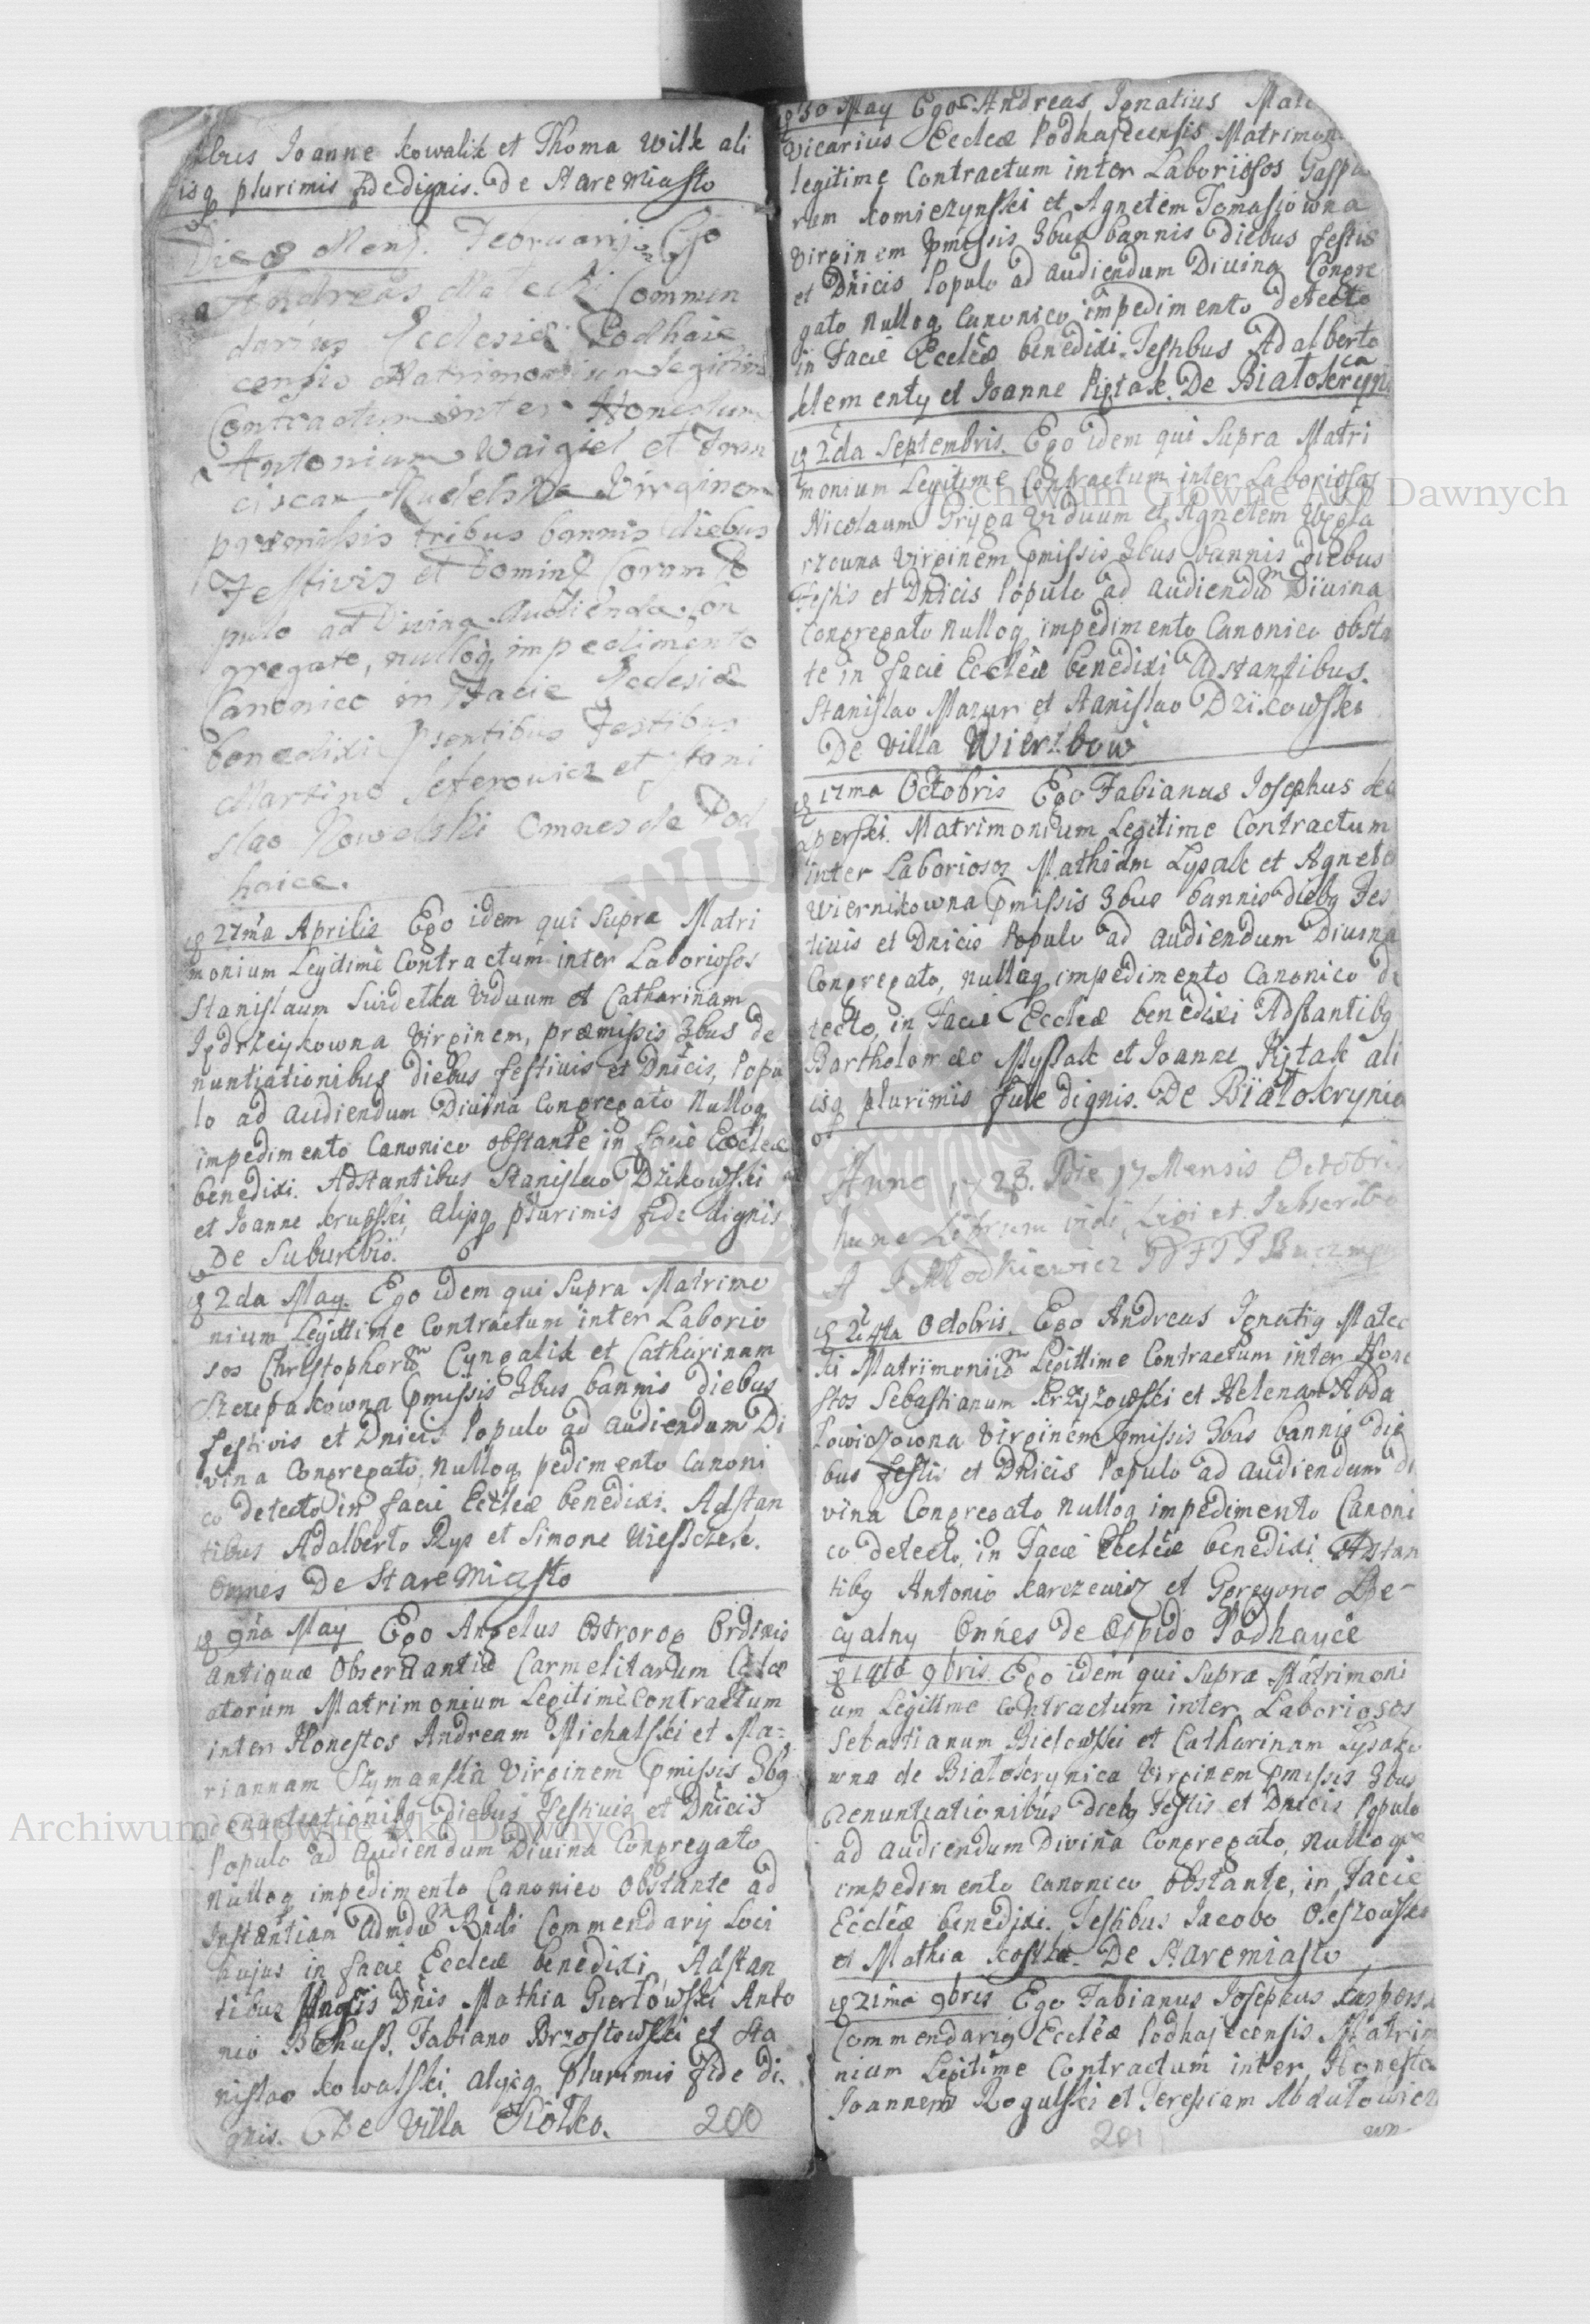 stibus Joanne Kowalik et Thoma Wilk ali
isq plurimis fide dignis. De Stare Miasto
Die 8 Mens. Februarij Ego
Andreas Matecki Commen
darius Ecclesiæ Podhaie
censis Matrimonium legitime
Contractum inter Honestum
Antonium Waigiel et Fran
ciscam Rudelska Virginem
præmissis tribus bannis diebus
Festivis et Dominic Coram Po
pulo ad Divina Audienda Con
gregato, nulloq impedimento
Canonico in Facie Ecclesiæ
benedixi Psentibus Testibus
Martino Seferowicz et Stani
slao Kowalski Omnes de Pod
haice.
27ma Aprilis Ego idem qui Supra Matri
monium Legitimè Contractum inter Laboriosos
Stanislaum Swidetka Viduum et Catharinam
Jędrzeykowna Virginem, præmissis 3bus de
nuntiationibus diebus festiuis et Dnicis, Popu
lo ad audiendum Diuina Congregato Nulloq
impedimento Canonico obstante in facie Eccleæ
benedixi. Adstantibus Stanislao Dzikowski
et Joanne Krupski, alijsq plurimis fide dignis
De Suburbio.
2da May. Ego idem qui Supra Matrimo
nium Legittime Contractum inter Laborio
sos Christophorum Cyngalik et Catharinam
Szczepakowna Pmissis 3bus bannis diebus
festivis et Dnicis Populo ad audiendum Di
vina Congregato, Nulloq pedimento Canoni
co detecto in facie Eccleæ benedixi. Adstan
tibus Adalberto Rys et Simone
Omnes De Stare Miasto
9na May Ego Angelus Ostrorog Ordinis
Antiquæ Obseruantiæ Carmelitarum Calce
atorum Matrimonium Legitimè Contractum
inter Honestos Andream Michalski et Ma-
riannam Szymanska Virginem Pmissis 3bq
denuntiationibq Diebus Festiuis et Dnicis
Populo ad Audiendum Diuina Congregato
Nulloq impedimento Canonico Obstante ad
Instantiam Admdum Rndi Commendarij Loci
hujus in facie Eccleæ benedixi Adstan
tibus Dnis Mathia Gierłowski Anto
nio Bohuss, Fabiano Brzostowski et Sta
nislao Kowalski alijsq plurimis fide di.
gnis. De Villa Siołko. 200
30 May Ego Andreas Ignatius Mate
Vicarius Eccleæ Podhajecensis Matrimon
legitime Contractum inter Laboriosos Gaspa
rum Komiczynski et Agnetem Tomasiowna
Virginem Pmissis 3bus bannis Diebus festis
et Dnicis Populo ad audiendum Diuina Congre
gato Nulloq Canonico impedimento detecto
in Facie Eccleæ benedixi. Testibus Adalberto
Klementy et Joanne Piętak. De Białokryni
ca
2da Septembris. Ego idem qui Supra Matri
monium Legitime Contractum inter Laboriosos
Nicolaum Gryga Viduum et Agnetem Węgla
rzowna Virginem Pmissis 3bus bannis diebus
Festis et Dnicis Populo ad audiendum Diuina
Congregato Nulloq impedimento Canonico obsta
te in facie Eccleæ benedixi Adstantibus.
Stanislao Mazur et Stanislao Dzikowski
De Villa Wierzbow
17ma Octobris Ego Fabianus Josephus Ka
sperski. Matrimonium Legitime Contractum
inter Laboriosos Mathiam Lysak et Agnete
Wiernikowna Pmissis 3bus bannis diebq Fes
tiuis et Dnicis Populo ad audiendum Diuina
Congregato, nulloq impedimento Canonico de
tecto, in Facie Eccleæ benedixi Adstantibq
Bartholomæo Myssak et Joanne Piętak ali
isq plurimis fide dignis. De Białokrynica
Anno 1728. Die 17 Mensis Octobris
hunc Librum vidi, Legi et Subscribo
A J Młodkiewicz
24ta Octobris. Ego Andreas Ignatiq Matec
ki Matrimonium Legittime Contractum inter Hone
stos Sebastianum Krzyzowski et Helenam Abda
Virginem Pmissis 3bus bannis die
bus festis et Dnicis Populo ad audiendum di
vina Congregato nulloq impedimento Canoni
co detecto, in Facie Eccleæ benedixi Adstan
tibq Antonio Karczewicz et Gregorio Spe-
cyalny Omnes de Oppido Podhayce
14ta 9bris. Ego idem qui Supra Matrimoni
um Legittime contractum inter Laboriosos
Sebastianum Bielowski et Catharinam Lysako
wna de Białokrynica Virginem Pmissis 3bus
denuntiationibus diebq Festis et Dnicis Populo
ad audiendum Divina Congregato, nulloque
impedimento canonico obstante, in Facie
Eccleæ benedixi. Testibus Jacobo Oleszowski
et Mathia Kostka. De Staremiasto
21ma 9bris Ego Fabianus Josephus Kaspers
Commendariq Eccleæ Podhajecensis Matrim
nium Legitime Contractum inter Honesto
Joannem Rogulski et Teressiam Abdułowicz
wn
201
Archiwum Główne Akt Dawnych
Archiwum Główne Akt Dawnych